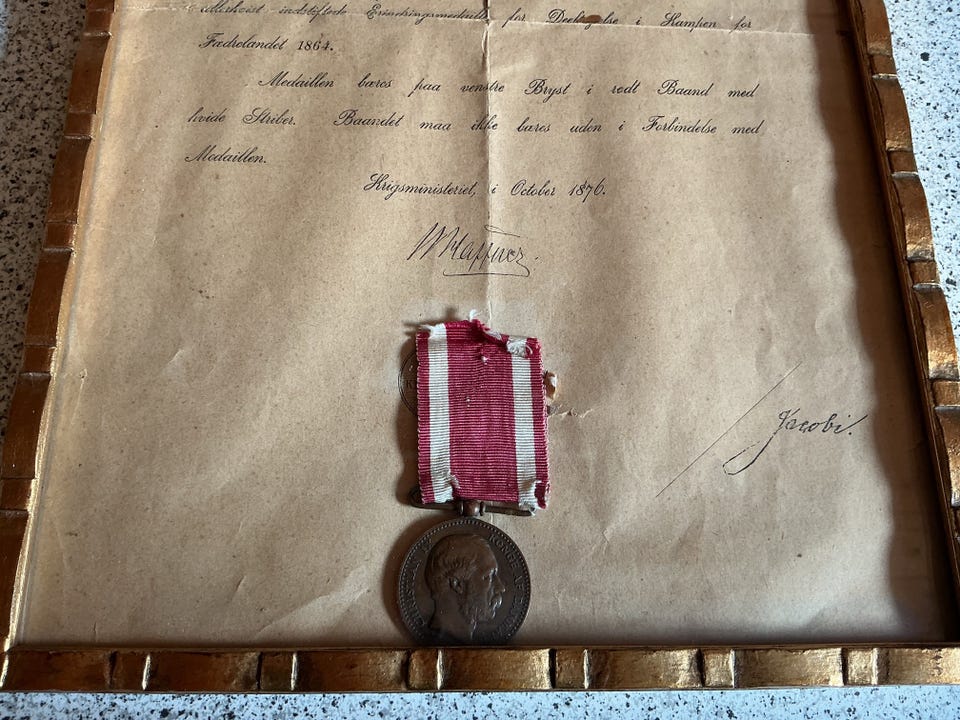 allerhöist indstiftede Erindringsmedaille for Deeltagelse i Kampen for
Fædrelandet 1864.
Medaillen bæres paa venstre Bryst i rødt Baand med
hvide Striber. Baandet maa ikke bæres uden i Forbindelse med
Medaillen.
Krigsministeriet, i October 1876.
W Haffner
Jacobi.
CHRISTIAN IX KONGE AF